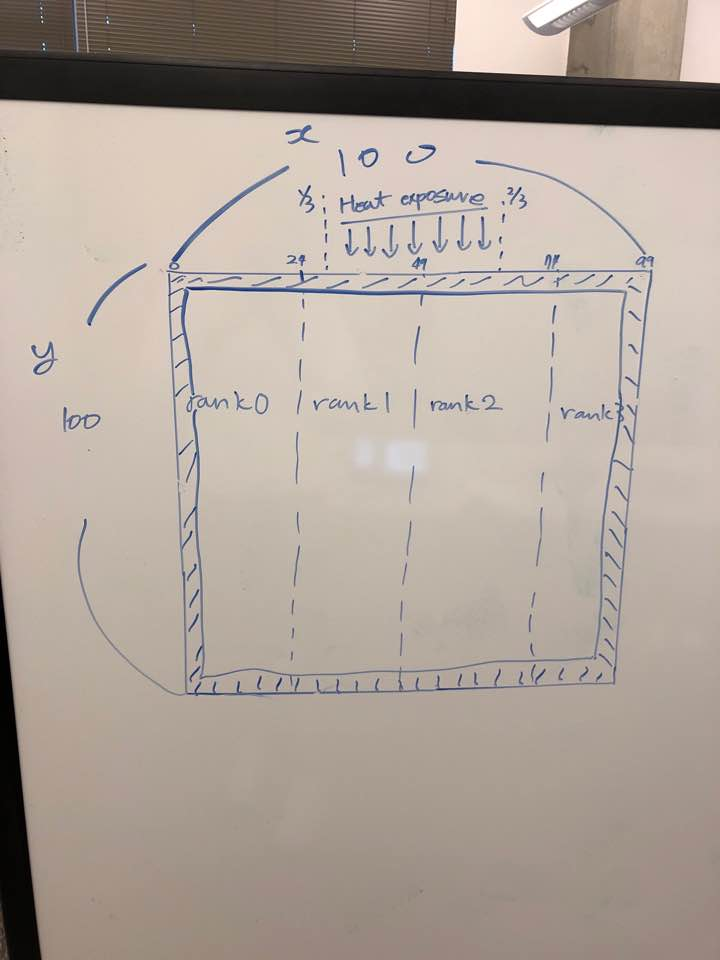 x
100
1/3 Heat exposure 2/3
0 24 49 99
y
rank0 rank1 rank2 rank3
100